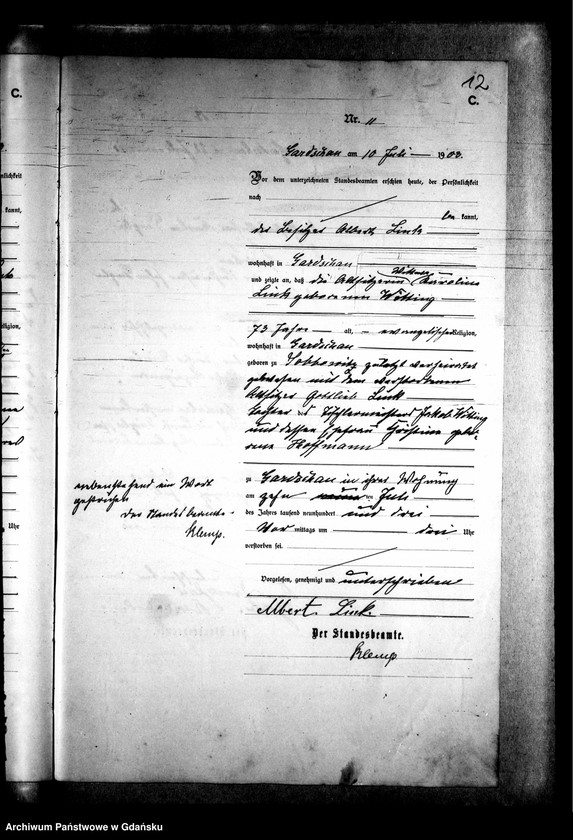 12
C.
C.
Nr. 11
Gardschau am 10 Juli 1903.
Vor dem unterzeichneten Standesbeamten erschien heute, der Persönlichkeit
nach
kannt,
der Besitzer Albert Link
wohnhaft in Gardschau
und zeigte an, daß die Altsitzerin Wittwe Karoline
Link geborenen Witting
73 Jahre alt, evangelischer Religion,
wohnhaft in Gardschau
geboren zu Sobbowitz zuletzt verheiratet
gewesen mit dem verstorbenen
Altsitzer Gottlieb Link
Tochter des Tischlermeisters Jakob Witting
und dessen Ehefrau Christine gebo-
rene Hoffmann
zu Gardschau in ihrer Wohnung
am zehn ten Juli
des Jahres tausend neunhundert und drei
Vor mittags um drei Uhr
verstorben sei.
Vorgelesen, genehmigt und unterschrieben
Albert Link.
Der Standesbeamte.
Klemp
nebenstehend ein Wort
gestrichen
Der Standesbeamte.
Klemp.
kannt,
Religion,
Uhr
Archiwum Państwowe w Gdańsku